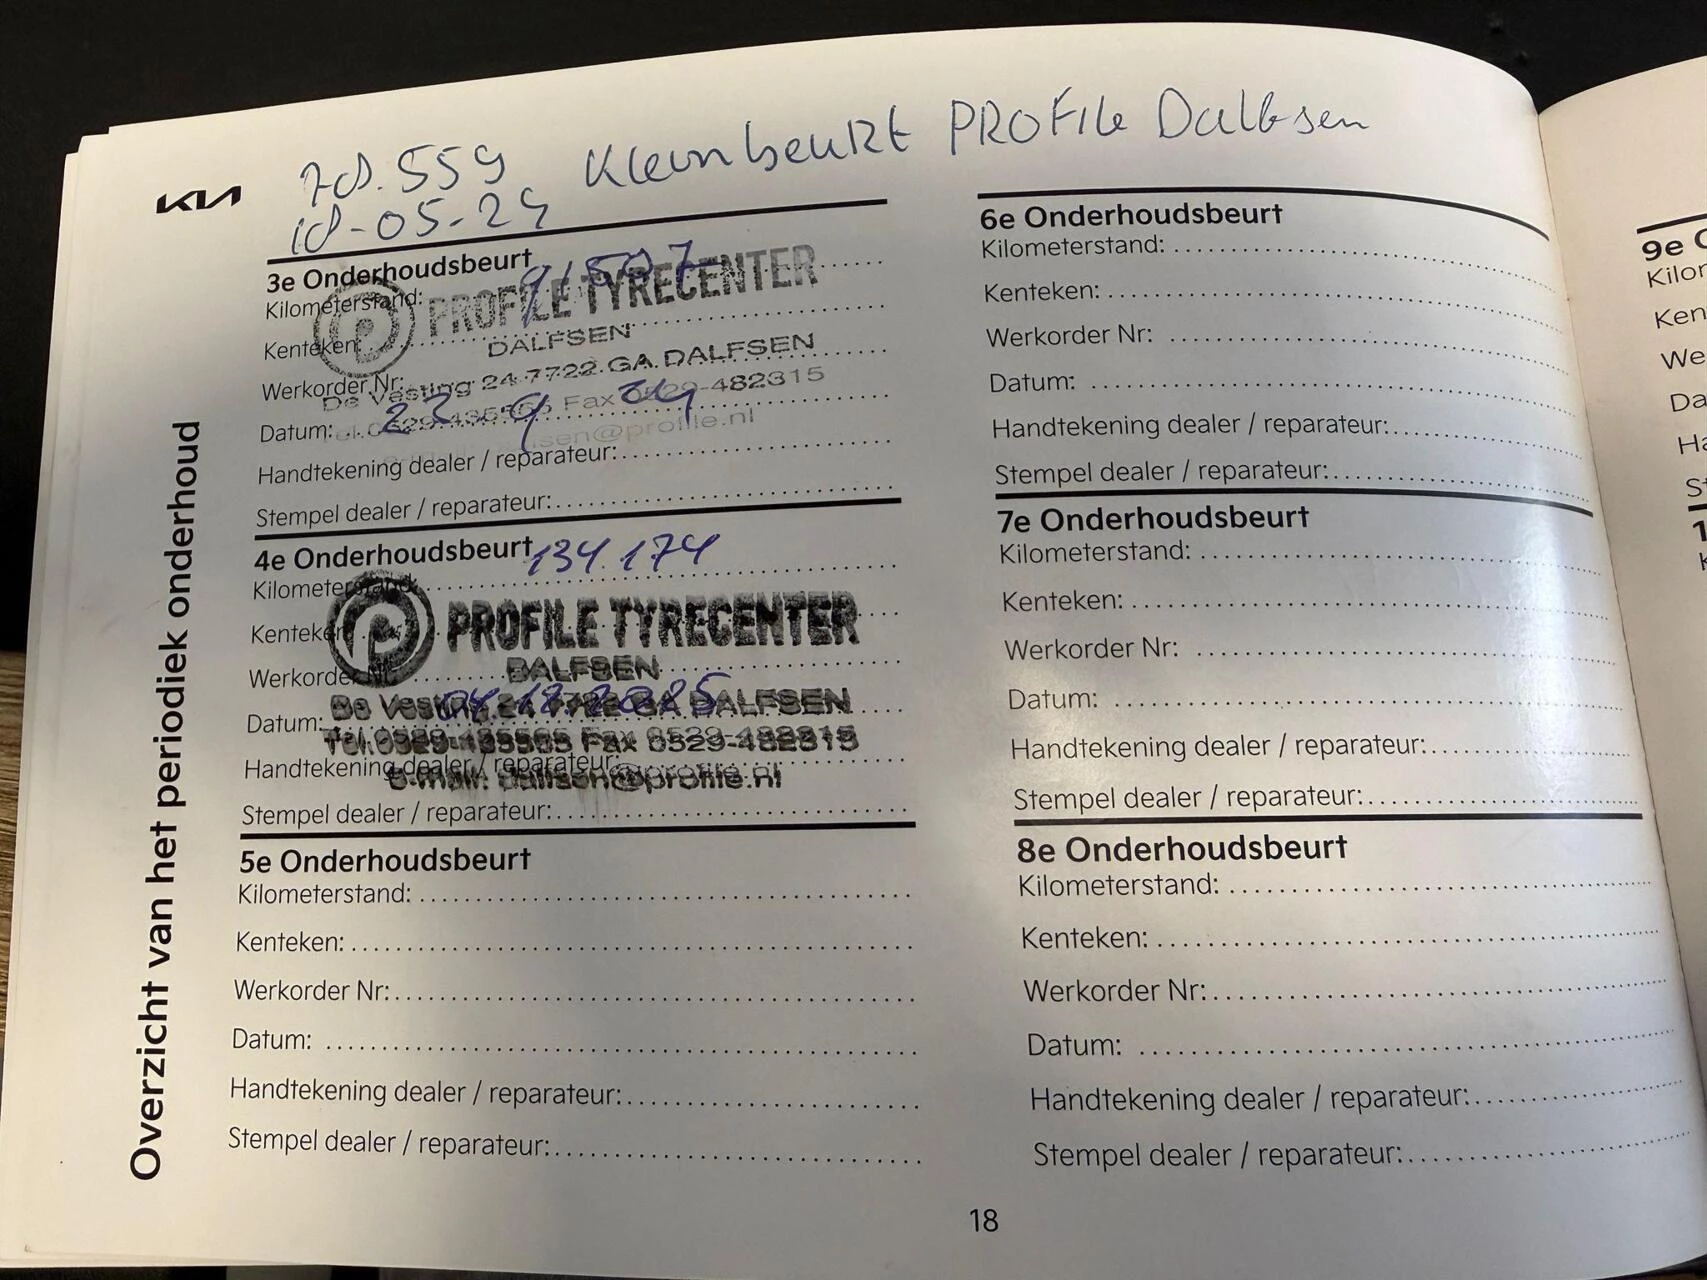 KIA
78.559 Kleinbeurt PROFile Dalfsen
18-05-24
3e Onderhoudsbeurt
Kilometerstand: 91507
PROFILE TYRECENTER
DALFSEN
Kenteken:
De Vesting 24 7722 GA DALFSEN
Werkorder Nr:
Tel.0529-435565 Fax 0529-482315
Datum: 23-9-24
dalfsen@profile.nl
Handtekening dealer / reparateur:
Stempel dealer / reparateur:
4e Onderhoudsbeurt 134.174
Kilometerstand:
PROFILE TYRECENTER
Kenteken:
DALFSEN
Werkorder Nr:
De Vesting 24 7722 GA DALFSEN
Datum: 2025
Tel.0529-435565 Fax 0529-482315
Handtekening dealer / reparateur:
e-mail: dalfsen@profile.nl
Stempel dealer / reparateur:
5e Onderhoudsbeurt
Kilometerstand:
Kenteken:
Werkorder Nr:
Datum:
Handtekening dealer / reparateur:
Stempel dealer / reparateur:
6e Onderhoudsbeurt
Kilometerstand:
Kenteken:
Werkorder Nr:
Datum:
Handtekening dealer / reparateur:
Stempel dealer / reparateur:
7e Onderhoudsbeurt
Kilometerstand:
Kenteken:
Werkorder Nr:
Datum:
Handtekening dealer / reparateur:
Stempel dealer / reparateur:
8e Onderhoudsbeurt
Kilometerstand:
Kenteken:
Werkorder Nr:
Datum:
Handtekening dealer / reparateur:
Stempel dealer / reparateur:
Overzicht van het periodiek onderhoud
18
9e O
Kilor
Ken
We
Da
Ha
St
1